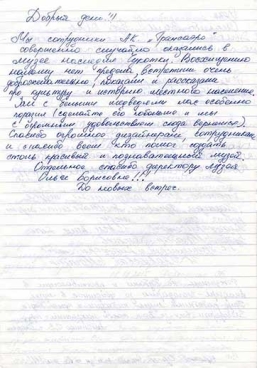 Добрый день!!
Мы сотрудники АК "Трансаэро"
совершенно случайно оказались в
музее наследия Чукотки. Восхищению
нашему нет предела, встретили очень
доброжелательно, показали и рассказали
про культуру и историю местного населения.
Зал с большим моржом нас особенно
поразил (сделайте его побольше и мы
с огромным удовольствием сюда вернемся)
Спасибо огромное дизайнерам, сотрудникам
и спасибо всем кто помог создать
столь красивый и познавательный музей.
Отдельное спасибо директору музея
Ольге Борисовне!!!
До новых встреч.